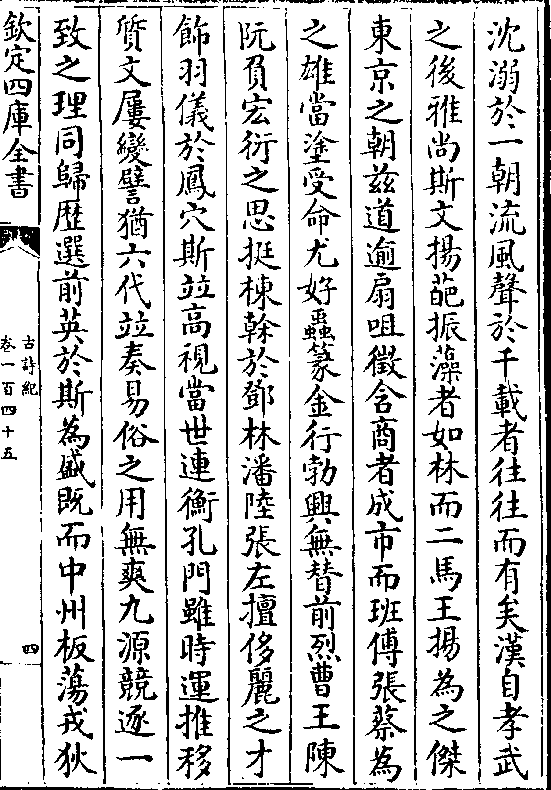 沈溺於一朝流風聲於千載者往往而有矣漢自孝武
之後雅尚斯文揚葩振藻者如林而二馬王揚為之傑
東京之朝兹道逾扇咀徵含商者成市而班傅張蔡為
之雄當塗受命尤好蟲篆金行勃興無替前烈曹王陳
阮負宏衍之思挺棟榦於鄧林潘陸張左擅侈麗之才
飾羽儀於鳳穴斯竝高視當世連衡孔門雖時運推移
質文屢變譬猶六代竝奏易俗之用無爽九源競逐一
致之理同歸歴選前英於斯為盛既而中州板蕩戎狄
欽定四庫全書
古詩紀
卷一百四十五
四